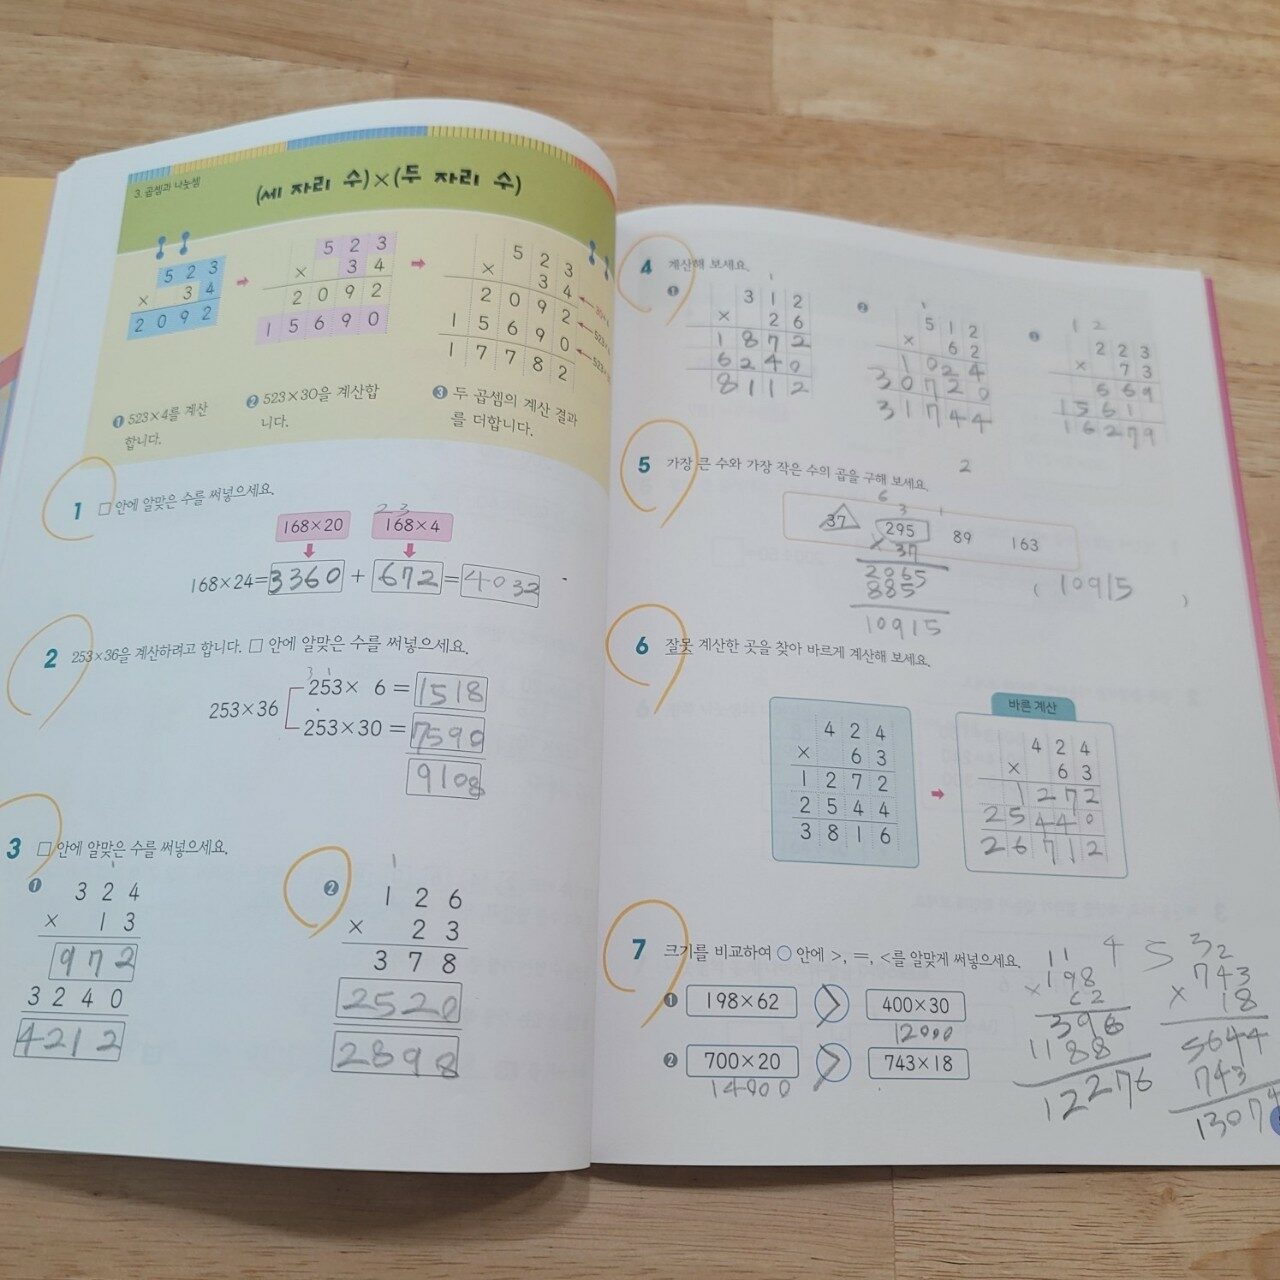 3. 곱셈과 나눗셈
(세 자리 수)×(두 자리 수)
5 2 3
× 3 4
2 0 9 2
5 2 3
× 3 4
2 0 9 2
1 5 6 9 0
5 2 3
× 3 4
2 0 9 2
1 5 6 9 0
1 7 7 8 2
❶ 523×4를 계산
합니다.
❷ 523×30을 계산합
니다.
❸ 두 곱셈의 계산 결과
를 더합니다.
1 □ 안에 알맞은 수를 써넣으세요.
2 3
168×20 168×4
168×24=3360 + 672 = 4032
2 253×36을 계산하려고 합니다. □ 안에 알맞은 수를 써넣으세요.
3 1
253× 6 = 1518
253×36
253×30 = 7590
9108
3 □ 안에 알맞은 수를 써넣으세요.
❶
1
3 2 4
× 1 3
9 7 2
3 2 4 0
4 2 1 2
❷
1
1 2 6
× 2 3
3 7 8
2 5 2 0
2 8 9 8
4 계산해 보세요.
❶
1
3 1 2
× 2 6
1 8 7 2
6 2 4 0
8 1 1 2
❷
1
5 1 2
× 6 2
1 0 2 4
3 0 7 2 0
3 1 7 4 4
❸
1 2
2 2 3
× 7 3
6 6 9
1 5 6 1
1 6 2 7 9
2
5 가장 큰 수와 가장 작은 수의 곱을 구해 보세요.
6
3 1
37 295 89 163
× 37
2065
885
10915
( 10915 )
6 잘못 계산한 곳을 찾아 바르게 계산해 보세요.
4 2 4
× 6 3
1 2 7 2
2 5 4 4
3 8 1 6
바른 계산
4 2 4
× 6 3
1 2 7 2
2 5 4 4 0
2 6 7 1 2
7 크기를 비교하여 ○ 안에 >, =, <를 알맞게 써넣으세요.
❶ 198×62 > 400×30
12000
❷ 700×20 > 743×18
14000
11 4 5 32
198
× 62
396
1188
12276
743
× 18
5644
743